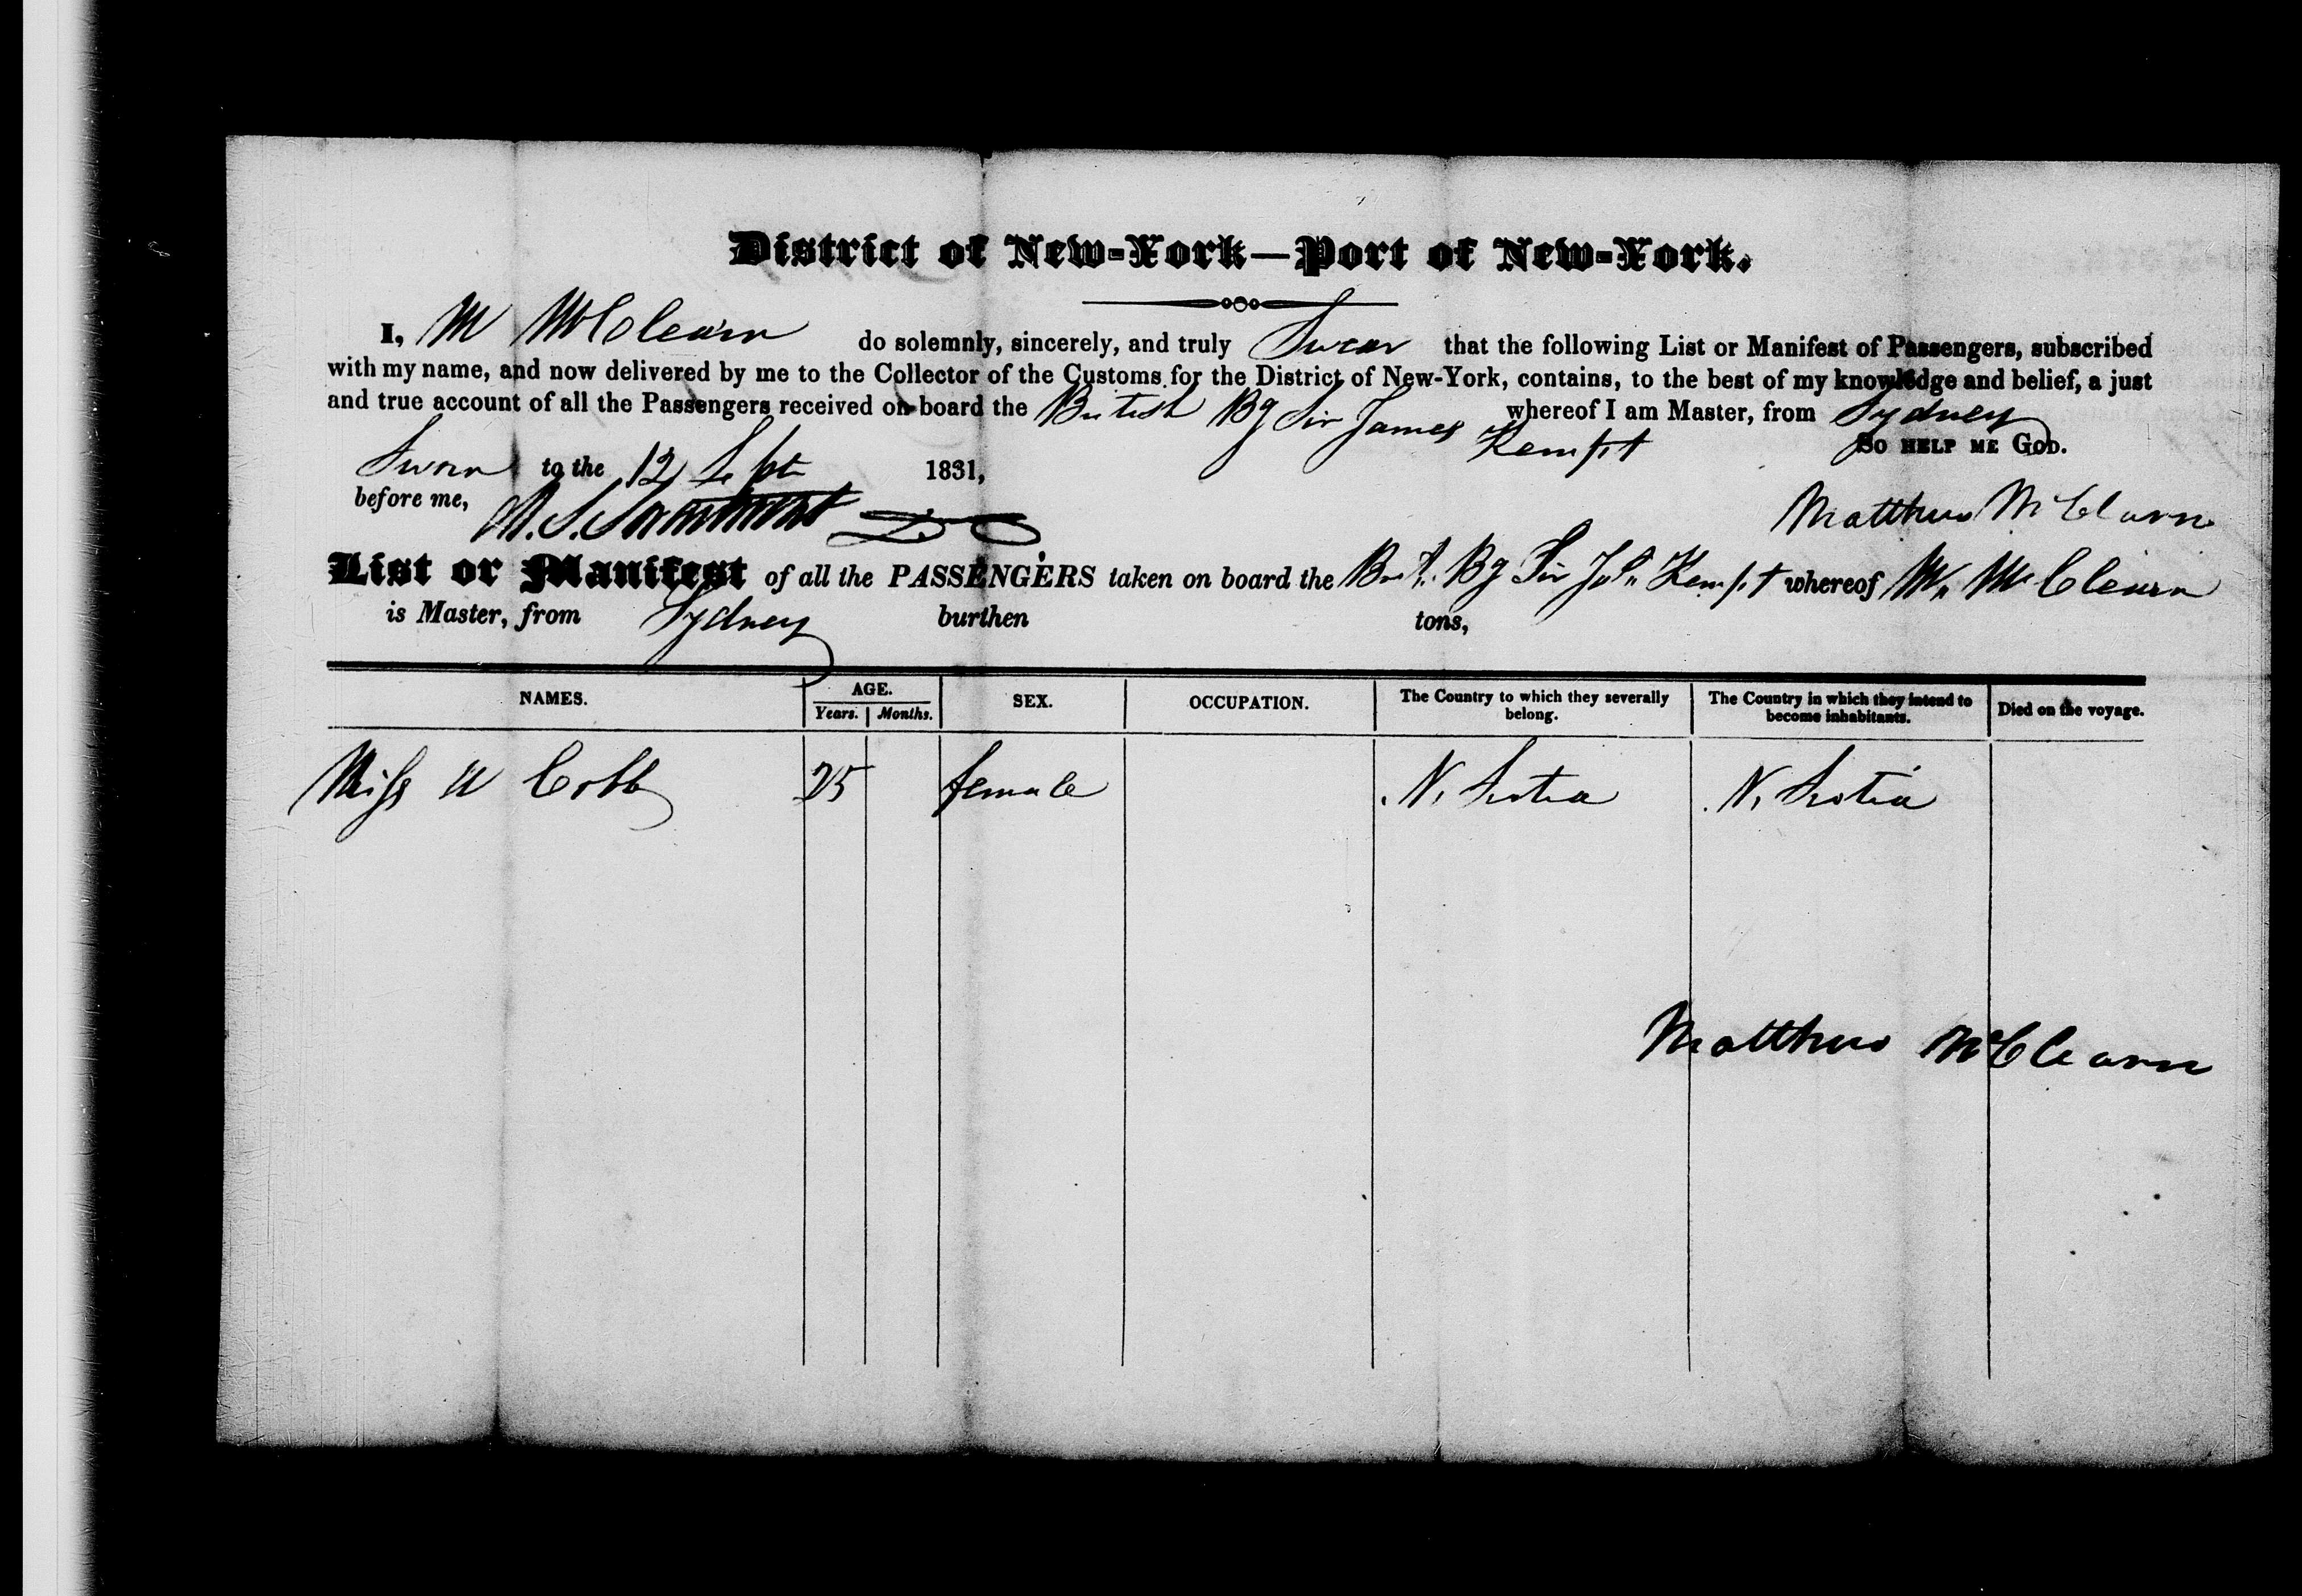 District of New-York—Port of New-York.
I, M McClearn do solemnly, sincerely, and truly Swear that the following List or Manifest of Passengers, subscribed
with my name, and now delivered by me to the Collector of the Customs for the District of New-York, contains, to the best of my knowledge and belief, a just
and true account of all the Passengers received on board the British Bg Sir James Kempt whereof I am Master, from Sydney
So HELP ME GOD.
Sworn to the 12 Sept 1831,
before me,
Matthew McClearn
List or Manifest of all the PASSENGERS taken on board the Brit. Bg Sir Jas Kempt whereof M. McClearn
is Master, from Sydney burthen tons,
NAMES. AGE. Years. Months. SEX. OCCUPATION. The Country to which they severally belong. The Country in which they intend to become inhabitants. Died on the voyage.
Miss W Cobb 25 female N. Scotia N. Scotia
Matthew McClearn